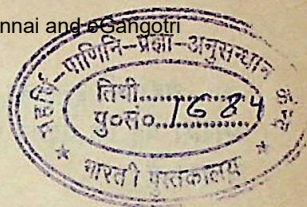 nnai and eGangotri
महर्षि-पाणिनि-प्रज्ञा-अनुसन्धान केन्द्र
तिथी..........
पु०सं०..1684
* भारती पुस्तकालय *